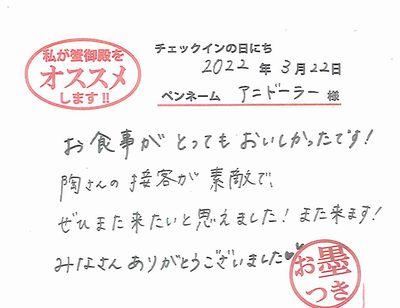 私が蟹御殿を
オススメ
します!!
チェックインの日にち
2022年3月22日
ペンネーム アニドーラー 様
お食事が とっても おいしかったです!
陶さんの 接客が 素敵で、
ぜひまた来たいと思えました! また来ます!
みなさん ありがとうございました♥♥
お墨
つき